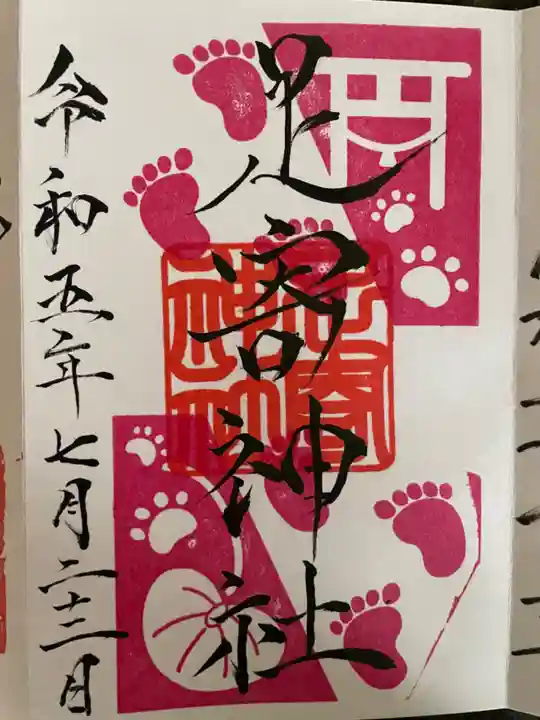 足寄神社
令和五年七月二十三日